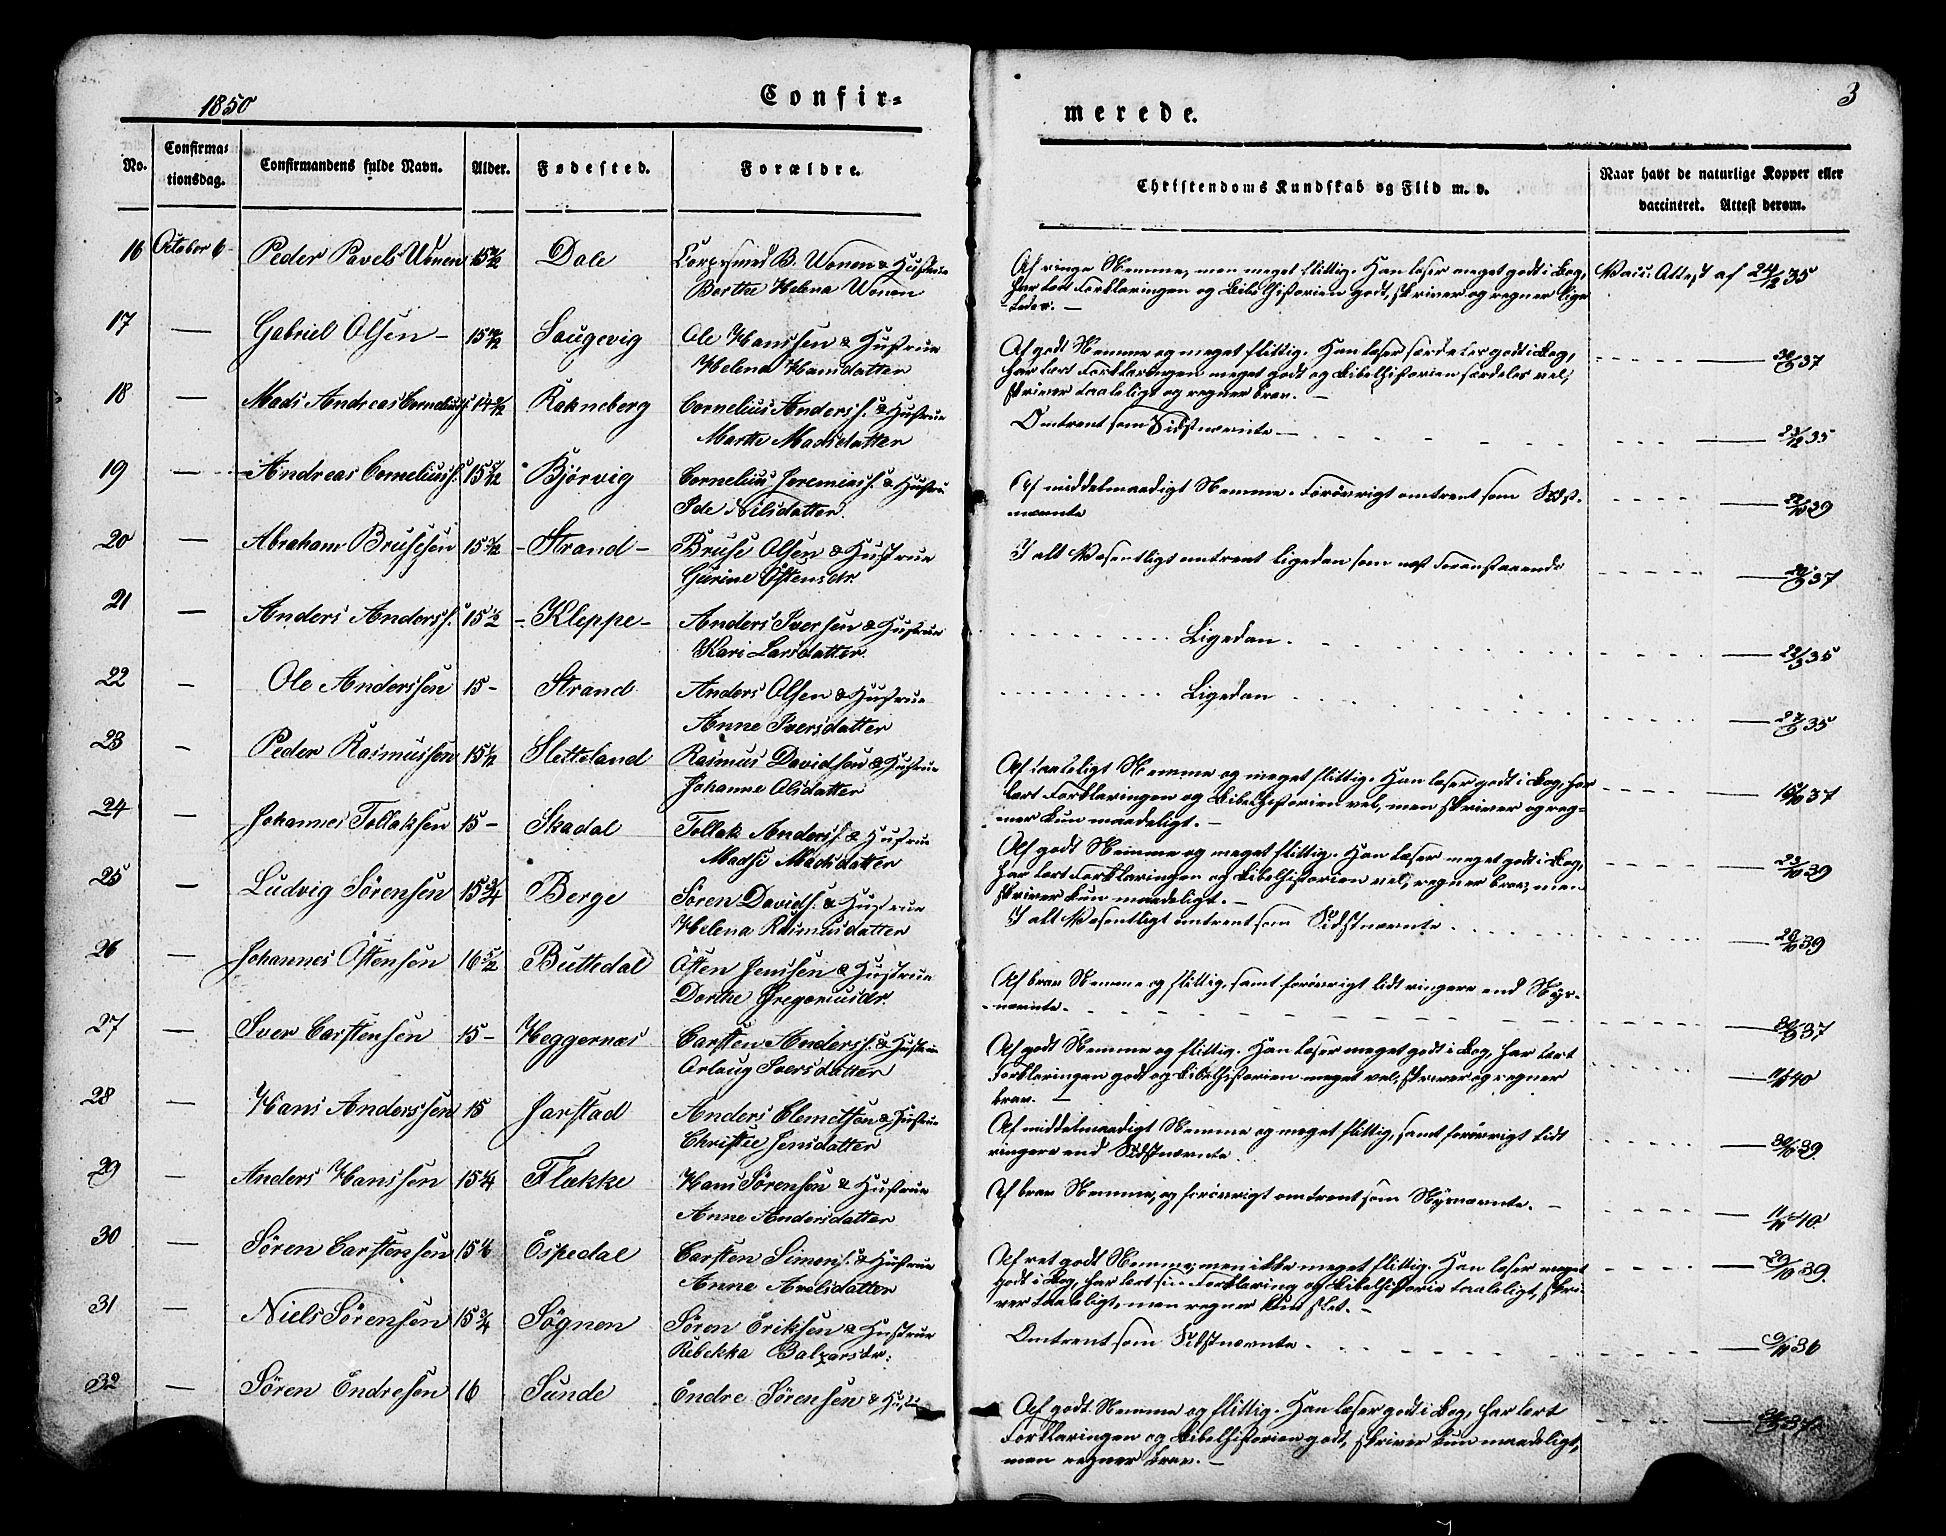 1850
Confir=
merede.
3
No.
Confirma=
tionsdag.
Confirmandens fulde Navn.
Alder.
Fødested.
Forældre.
Christendoms Kundskab og Flid m. v.
Naar havt de naturlige Kopper eller
vaccineret. Attest derom.
16 October 6 Peder Pavels Wonen 15 Dale B. Wonen & Hustrue
Berthe Helena Wonen
Af ringe Nemme, men meget flittig. Han læser meget godt i Bog, Vacc: Attest af 24/12 35
har lært Forklaringen og Bibelhistorien godt, skriver og regner lige
ledes. —
17 — Gabriel Olsen — 15 Saugevig Ole Hanssen & Hustrue
Helena Hansdatter
Af godt Nemme og meget flittig. Han læser særdeles godt i Bog,
har lært Forklaringen meget godt og Bibelhistorien særdeles vel,
skriver taaleligt og regner brav. —
18 — Mads Andreas Corneliuss. 14 Rakneberg Cornelius Anderss. & Hustrue
Marthe Madsdatter
Omtrent som Sidstnævnte —
19 — Andreas Corneliuss. 15 Bjørvig Cornelius Jeremiass. & Hustru
Ide Nilsdatter.
Af middelmaadigt Nemme. Forøvrigt omtrent som Sidst-
nævnte
20 — Abraham Brusesen 15 — Strand — Bruse Olsen & Hustrue
Gurine Østensdr
I alt Væsentligt omtrent ligedan som næst Foranstaaende
21 — Anders Anderss. 15 1/2 — Kleppe — Anders Iversen & Hustrue
Kari Larsdatter
Ligedan.
22 — Ole Anderssen 15 — Strand Anders Olsen & Hustrue
Anne Iversdatter
Ligedan
23 — Peder Rasmussen 15 Sletteland Rasmus Davidsen & Hustrue
Johanne Olsdatter
Af taaleligt Nemme og meget flittig. Han læser godt i Bog, har
lært Forklaringen og Bibelhistorien vel, men skriver og reg-
ner kun maadeligt. —
24 — Johannes Tollaksen 15 — Skadal Tollak Anderss. & Hustrue
Madsi Madsdatter
Af godt Nemme og meget flittig. Han læser meget godt i Bog,
har lært Forklaringen og Bibelhistorien vel, regner brav, men
skriver kun maadeligt. —
25 — Ludvig Sörensen 15 3/4 Berge Sören Davids. & Hustrue
Helena Rasmusdatter
I alt Væsentligt omtrent som Sidstnævnte
26 — Johannes Östensen 16 Buttedal Östen Jenssen & Hustrue
Dorthe Gregoriusdr.
Af brav Nemme og flittig, samt forøvrigt lidt ringere end Nys-
nævnte.
27 — Iver Carstensen 15 — Heggernæs Carsten Anderss. & Hustrue
Orlaug Iversdatter
Af godt Nemme og flittig. Han læser meget godt i Bog, har lært
Forklaringen godt og Bibelhistorien meget vel, skriver og regner
brav. —
28 — Hans Anderssen 15 Jarstad Anders Clemetsen & Hustrue
Christie Jensdatter
Af middelmaadigt Nemme og meget flittig, samt forøvrigt lidt
ringere end Sidstnævnte.
29 — Anders Hanssen 15 1/4 Flække Hans Sörensen & Hustrue
Anne Andersdatter
Af brav Nemme, og forøvrigt omtrent som Nysnævnte. —
30 — Sören Carstensen 15 Espedal Carsten Simens. & Hustrue
Anne Axelsdatter
Af ret godt Nemme, men ikke meget flittig. Han læser meget
godt i Bog, har lært sin Forklaring og Bibelhistorie taaleligt, skri-
ver taaleligt, men regner kun slet. —
31 — Niels Sörensen 15 3/4 Søgnen Sören Eriksen & Hustrue
Rebekka Balzarsdr.
Omtrent som Sidstnævnte.
32 — Sören Endresen 16 Sunde Endre Sörensen &
Af godt Nemme og flittig. Han læser godt i Bog, har lært
Forklaringen og Bibelhistorien godt, skriver kun maadeligt,
men regner brav. —